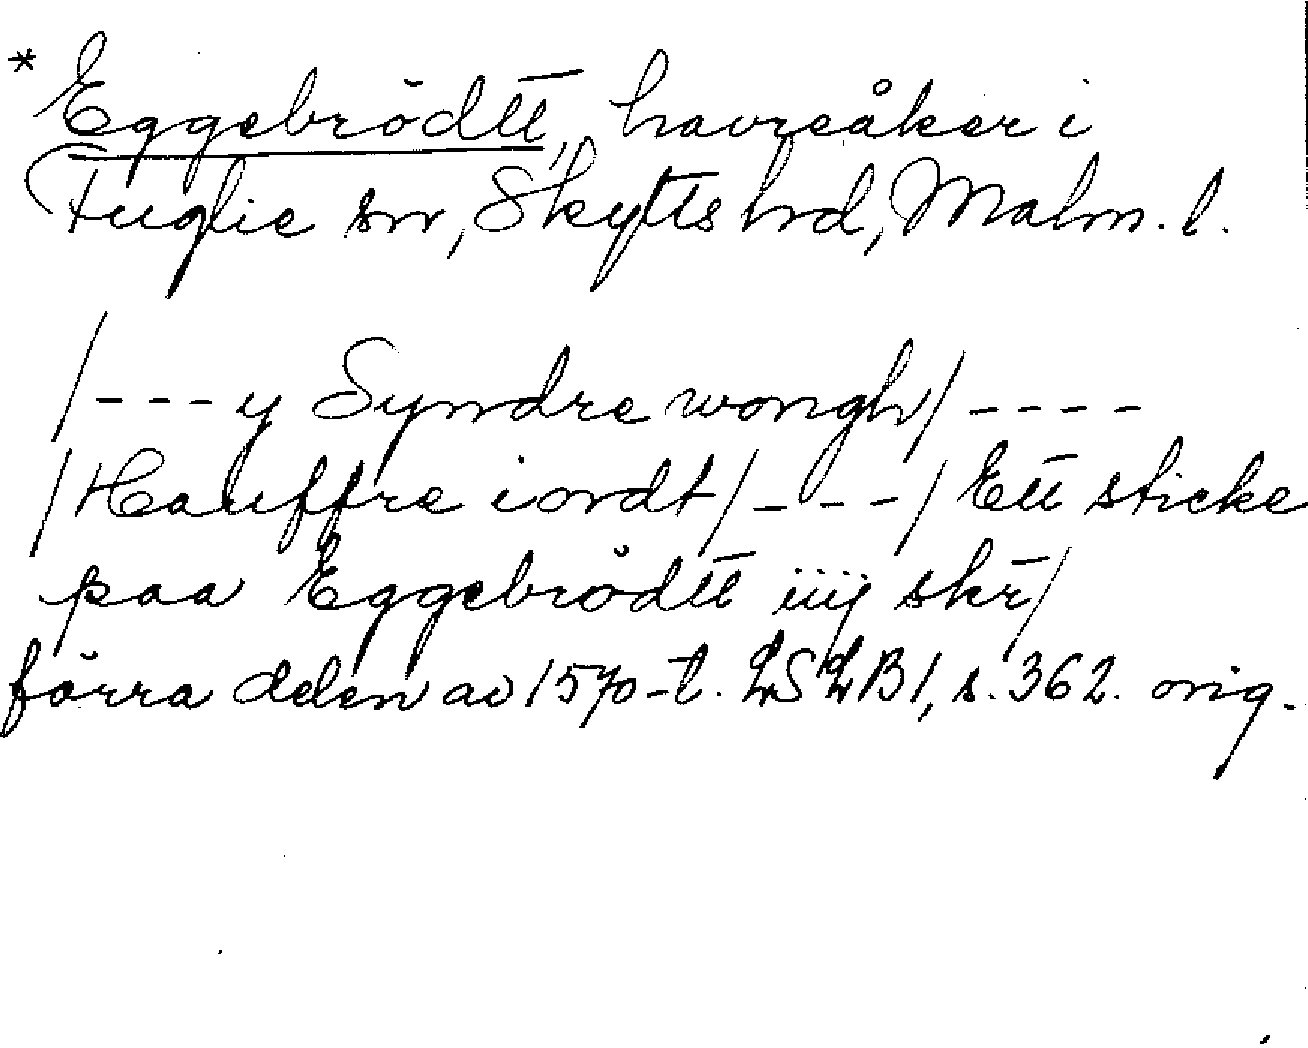 * Eggebrödtt, havreåker i
Fuglie sn, Skytts hrd, Malm. l.
/---y Syndre wongh/----
/Hauffre iordt/---/Ett sticke
paa Eggebrödtt iiij skr/
förra delen av 1570-t. LSLB1, s. 362. orig.